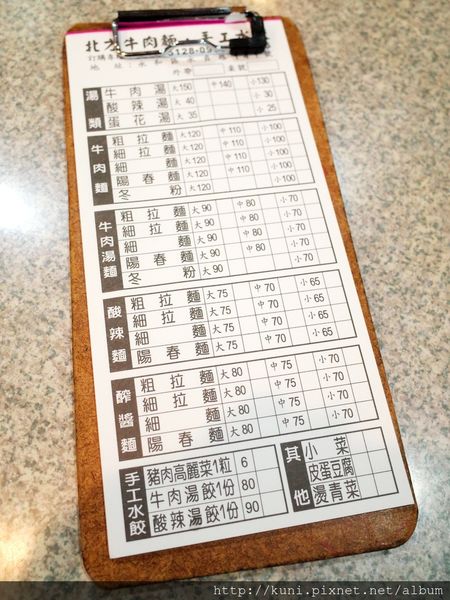 北方牛肉麵
地址:永和區
外帶 桌號
湯類
牛肉湯 大150 中140 小130
酸辣湯 大40 小30
蛋花湯 大35 小25
牛肉麵
粗拉麵 大120 中110 小100
細拉麵 大120 中110 小100
細麵 大120 中110 小100
陽春麵 大120 中110 小100
冬粉 大120 小100
牛肉湯麵
粗拉麵 大90 中80 小70
細拉麵 大90 中80 小70
細麵 大90 中80 小70
陽春麵 大90 中80 小70
冬粉 大90 小70
酸辣麵
粗拉麵 大75 中70 小65
細拉麵 大75 中70 小65
細麵 大75 中70 小65
陽春麵 大75 中70 小65
酢醬麵
粗拉麵 大80 中75 小70
細拉麵 大80 中75 小70
細麵 大80 中75 小70
陽春麵 大80 中75 小70
手工水餃
豬肉高麗菜1粒 6
牛肉湯餃1份 80
酸辣湯餃1份 90
其他
小菜
皮蛋豆腐
燙青菜
http://kuni.pixnet.net/album